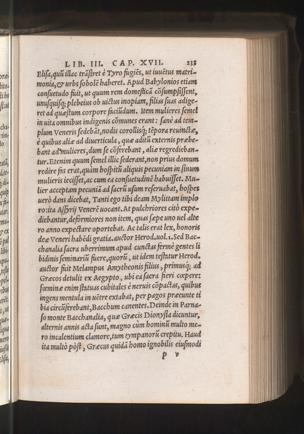 LIB. III. CAP. XVII. 233
Elisa, quū illac trāsiret è Tyro fugiēs, ut iuuētus matri-
monia, & urbs sobolē haberet. Apud Babylonios etiam
consuetudo fuit, ut quum rem domesticā cōsumpsissent,
unusquisq; plebeius ob uictus inopiam, filias suas adige-
ret ad quæstum corpore faciūdum. Item mulieres semel
in uita omnibus indigenis cōmunes erant: sanè ad tem-
plum Veneris sedebāt, nodis corollisq; tēpora reuinctæ,
è quibus aliæ ad diuerticula, quæ aditū externis præbe-
bant ad mulieres, dum se cōferebant, aliæ regredieban-
tur. Etenim quum semel illic sederant, non prius domum
redire fas erat, quàm hospitū aliquis pecuniam in sinum
mulieris iecisset, ac cum ea consuetudinē habuisset. Mu-
lier acceptam pecuniā ad sacrū usum reseruabat, hospes
uerò dans dicebat, Tanti ego tibi deam Mylittam implo
ro ita Assyrij Venerē uocant. At pulchriores citò expe-
diebantur, deformiores non item, quas sæpe uno uel alte
ro anno expectare oportebat. Ac talis erat lex, honoris
deæ Veneri habēdi gratia. auctor Herod. uol. 1. Sed Bac-
chanalia sacra uberrimum apud cunctas fermè gentes li
bidinis seminariū fuere, quorū, ut idem testatur Herod.
auctor fuit Melampus Amytheonis filius, primusq; ad
Græcos detulit ex Aegypto, ubi ea sacra fieri cœpere:
fœminæ enim statuas cubitales è neruis cōpactas, quibus
ingens mentula in uētre extabat, per pagos præeunte ti
bia circūferebant, Bacchum canentes. Deinde in Parna-
so monte Bacchanalia, quæ Græcis Dionysia dicuntur,
alternis annis acta sunt, magno cùm hominū multo me-
ro incalentium clamore, tum tympanorū crepitu. Haud
ita multò pòst, Græcus quidā homo ignobilis eiusmodi
p v